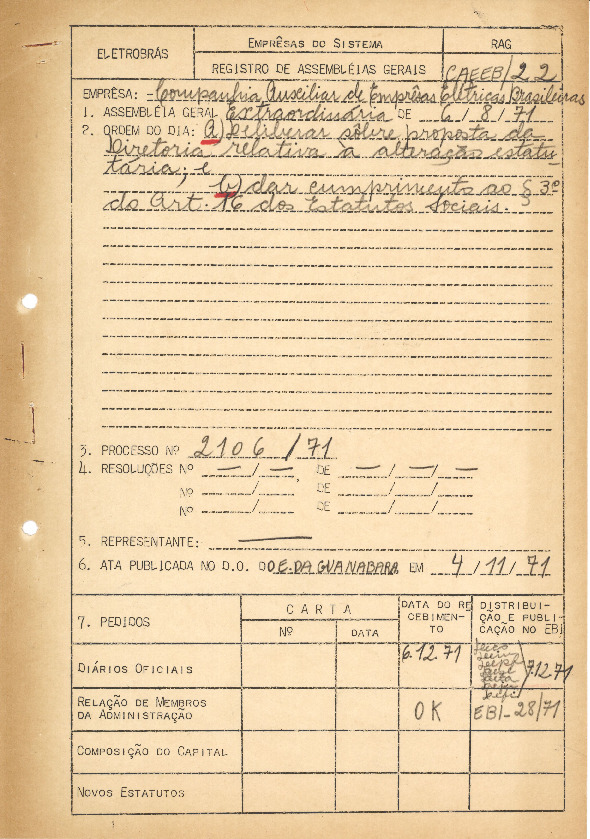 ELETROBRÁS
EMPRÊSAS DO SISTEMA
RAG
REGISTRO DE ASSEMBLÉIAS GERAIS
CAEEB/22
EMPRÊSA: - Companhia Auxiliar de Emprêsas Elétricas Brasileiras
1. ASSEMBLÉIA GERAL Extraordinária DE 6/8/71
2. ORDEM DO DIA: a) Deliberar sôbre proposta da
Diretoria relativa à alteração estatu-
tária; e
b) dar cumprimento ao § 3º
do Art. 16 dos Estatutos Sociais.
3. PROCESSO Nº 2106/71
4. RESOLUÇÕES Nº — / —, DE — / — / —
Nº / DE / /
Nº / DE / /
5. REPRESENTANTE: —
6. ATA PUBLICADA NO D.O. DO E. DA GUANABARA EM 4/11/71
7. PEDIDOS
CARTA
Nº
DATA
DATA DO RE
CEBIMEN-
TO
DISTRIBUI-
ÇÃO E PUBLI-
CAÇÃO NO EBI
DIÁRIOS OFICIAIS
6.12.71
7.12.71
RELAÇÃO DE MEMBROS
DA ADMINISTRAÇÃO
OK
EBI-28/71
COMPOSIÇÃO DO CAPITAL
NOVOS ESTATUTOS